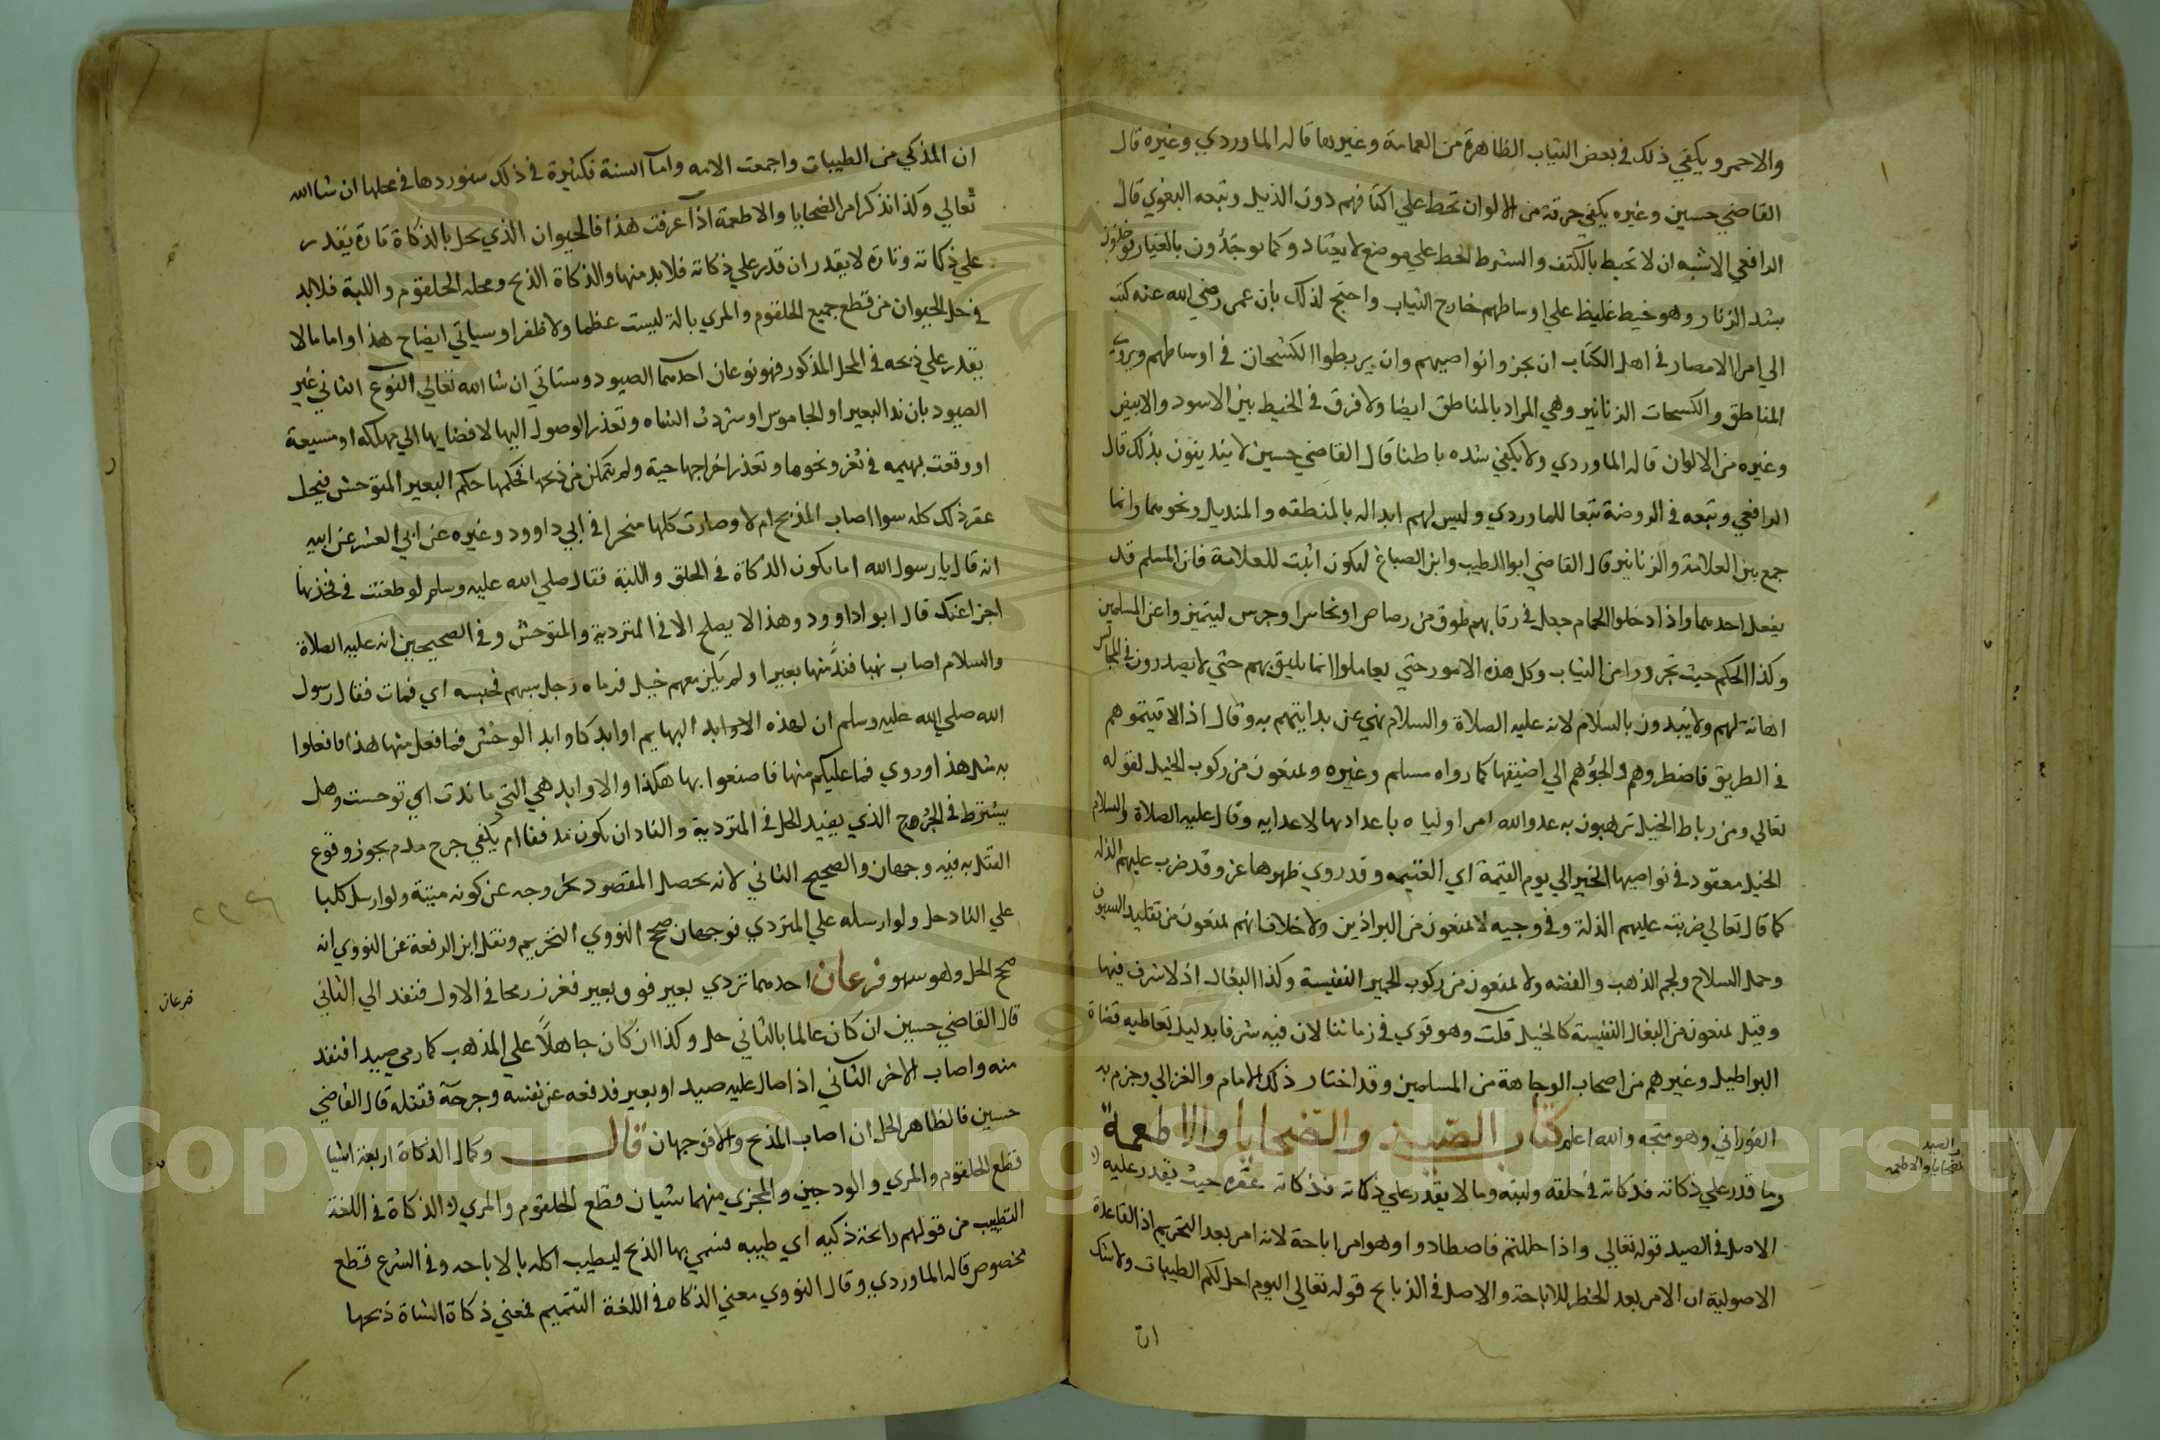 والاحمر ويكفي ذلك في بعض الثياب الظاهرة من العمامة وغيرها قاله الماوردي وغيره قال
القاضي حسين وغيره يكفي خرقة من الالوان تحط علي اكتافهم دون الذيل وتبعه البغوي قال
الرافعي الاشبه ان لا تحيط بالكتف والشرط الخط علي موضع لا يعتاد وكما يوخذون بالغيار يوخذون
بشد الزنار وهو خيط غليظ علي اوساطهم خارج الثياب واحتج لذلك بان عمر رضي الله عنه كتب
الي امرا الامصار في اهل الكتاب ان يجزوا نواصيهم وان يربطوا الكشحات في اوساطهم ويروي
المناطق والكسحات الزنانير وهي المراد بالمناطق ايضا ولا فرق في الخيط بين الاسود والابيض
وغيره من الالوان قاله الماوردي ولا يكفي شده باطنا قال القاضي حسين لا يتدينون بذلك قال
الرافعي وتبعه في الروضة تبعا للماوردي وليس لهم ابداله بالمنطقه والمنديل ونحوهما وانما
جمع بين العلامة والزنانير قال القاضي ابوا الطيب وابن الصباغ ليكون اثبت للعلامة فان المسلم قد
يفعل احدهما واذا دخلوا الحمام جعل في رقابهم طوق من رصاص او نحاس او جرس ليتميزوا عن المسلمين
وكذا الحكم حيث تجردوا من الثياب وكل هذه الامور حتي يعاملوا انما يليق بهم حتي لا يصدرون في المجالس
اهانة لهم ولا يبدون بالسلام لانه عليه الصلاة والسلام نهي عن بدايتهم به وقال اذا لاقيتموهم
في الطريق فاضطروهم والجؤهم الي اضيقها كما رواه مسلم وغيره ويمنعون من ركوب الخيل لقوله
تعالي ومن رباط الخيل ترهبون به عدو الله امر اولياه باعدادها لاعدايه وقال عليه الصلاة والسلام
الخيل معقود في نواصيها الخير الي يوم القيمة اي الغنيمه وقد روي ظهورها عز وقد ضرب عليهم الذله
كما قال تعالي ضربت عليهم الذلة وفي وجيه لا يمنعون من البراذين ولا خلاف انهم يمنعون من تقليد السيوف
وحمل السلاح ولجم الذهب والفضه ولا يمنعون من ركوب الحمير النفيسة وكذا البغال اذ لا شرف فيها
وقيل يمنعون من البغال النفيسة كالخيل قلت وهو قوي في زماننا لان فيه شرفا بدليل تعاطيه قضاة
البراطيل وغيرهم من اصحاب الوجاهة من المسلمين وقد اختار ذلك الامام والغزالي وجزم به
الفوراني وهو متجه والله اعلم كتاب الصيد والضحايا والاطعمة
وما قدر علي ذكاته فذكاته في حلقه ولبته وما لا يقدر علي ذكاته فذكاته عقره حيث يقدر عليه
الاصل في الصيد قوله تعالي واذا حللتم فاصطادوا وهو امر اباحة لانه امر بعد التحريم اذ القاعدة
الاصولية ان الامر بعد الحظر للاباحة والاصل في الذبايح قوله تعالي اليوم احل لكم الطيبات ولا شك
ان
الصيد
والضحايا والاطعمه
ان المذكي من الطيبات واجمعت الامه واما السنة فكثيرة في ذلك سنوردها في محلها ان شا الله
تعالي وكذا نذكر امر الضحايا والاطعمة اذا عرفت هذا فالحيوان الذي يحل بالذكاة تارة يقدر
علي ذكاته وتارة لا يقدر ان قدر علي ذكاته فلابد منها والذكاة الذبح ومحله الحلقوم واللبة فلابد
في حل الحيوان من قطع جميع الحلقوم والمري بالة ليست عظما ولا ظفرا وسياتي ايضاح هذا واما ما لا
يقدر علي ذبحه في المحل المذكور فهو نوعان احدهما الصيود وستاتي ان شا الله تعالي النوع الثاني غير
الصيود بان ند البعير او الجاموس او شردت الشاه وتعذر الوصول اليها لافضايها الي مهلكه او مسبعة
او وقعت بهيمه في نغر ونحوها وتعذر اخراجها حية ولم يتمكن من ذبحها فحكمها حكم البعير المتوحش فيحل
عقر ذلك كله سوا اصاب المذبح ام لا وصارت كلها منحرا في ابي داوود وغيره عن ابي العشر عن ابيه
انه قال يا رسول الله اما يكون الذكاة في الحلق واللبة فقال صلي الله عليه وسلم لو طعنت في فخذها
اجزا عنك قال ابو اداوود وهذا لا يصلح الا في المتردية والمتوحش وفي الصحيحين انه عليه الصلاة
والسلام اصاب نهبا فند منها بعير او لم يكن معهم خيل فرماه رجل بسهم فحبسه اي فمات فقال رسول
الله صلي الله عليه وسلم ان لهذه الاوابد البهايم اوابد كاوابد الوحش فما فعل منها هذا فافعلوا
به مثل هذا وروي فما عليكم منها فاصنعوا بها هكذا والاوابد هي التي ما ندت اي توحست وهل
يشترط في الجرح الذي يفيد الحل في المتردية والناد ان يكون مذففا ام يكفي جرح مدم يجوز وقوع
القتل به فيه وجهان والصحيح الثاني لانه يحصل المقصود بخروجه عن كونه ميتة ولو ارسل كلبا
علي الناد حل ولو ارسله علي المتردي فوجهان صحح النووي التحريم ونقل ابن الرفعة عن النووي انه
صحح الحل وهو سهو فرعان احدهما تردي بعير فوق بعير فغرز رمحا في الاول فنفذ الي الثاني
قال القاضي حسين ان كان عالما بالثاني حل وكذا ان كان جاهلا علي المذهب كما رمي صيدا فنفذ
منه واصاب الاخر الثاني اذا صال عليه صيد او بعير فدفعه عن نفسه وجرحه فقتله قال القاضي
حسين فالظاهر الحل ان اصاب المذبح والا فوجهان قال وكمال الذكاة اربعة اشيا
قطع الحلقوم والمري والودجين والمجزي منهما شيان قطع الحلقوم والمري الذكاة في اللغة
التطيب من قولهم رائحة ذكيه اي طيبه فسمي بها الذبح ليطيب اكله بالاباحه وفي الشرع قطع
مخصوص قاله الماوردي وقال النووي معني الذكاه في اللغة التتميم فمعني ذكاة الشاة ذبحها
فرعان
Copyright © King Saud University